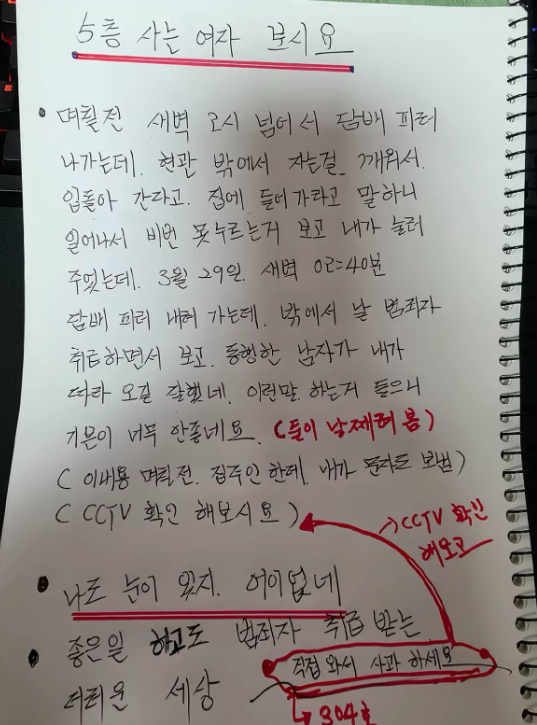 5층 사는 여자 보시요
며칠전 새벽 2시 넘어서 담배 피러
나가는데. 현관 밖에서 자는걸 깨워서.
입돌아 간다고. 집에 들어가라고 말하니
일어나서 비번 못누르는거 보고 내가 눌러
주었는데. 3월 29일. 새벽 02=40분
담배 피러 내려 가는데. 밖에서 날 범죄자
취급하면서 보고. 동행한 남자가 내가
따라 오길 잘했네. 이런말 하는거 들으니
기분이 너무 안좋네요. (들이 날째려 봄)
( 이내용 며칠전. 집주인한테. 내가 문자도 보냄)
( CCTV 확인 해보시요 )
CCTV 확인
해보고
나도 눈이 있지. 어이없네
좋은일 하고도 범죄자 취급 받는
더러운 세상
직접 와서 사과 하세요
304호